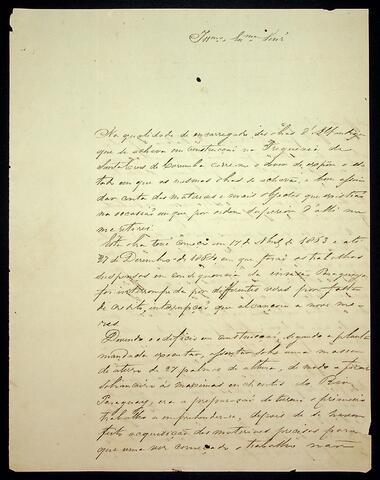 Illmo. Exmo. Senr.
Na qualidade de encarregado das obras d'Alfandega
que se achava em construcção na Freguezia de
Santa Cruz de Corumba corre-me o dever de expôr o es-
tado em que as mesmas obras se achava, e bem assim
dar conta dos materiaes e mais que existião
na occasião em que por ordem Superior d'alli me
retirei.
Esta obra teve começo em 17 de Abril de 1863 e até
27 de Dezembro de 1864 em que forão os trabalhos
suspensos em consequencia da invasão Paraguaya
foi interrompida por differentes vezes por falta
de credito, interrupção que alcançou a nove me-
zes.
Devendo o edificio em construcção, segundo a planta
mandada executar, assentar sobre uma massa
de aterro de 27 palmos de altura, de modo a ficar
sobranceiro às maximas enchentes do Rio
Paraguay, era a preparação do terreno o primeiro
trabalho a emprehender-se, depois de haver
feito acquisição dos materiaes precisos para
que uma vez começado o trabalho não